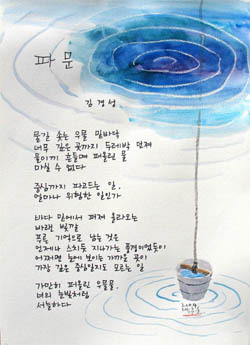 파문
김경성
물길 솟는 우물 밑바닥
너무 깊은 곳까지 두레박 던져
물이끼 흔들며 퍼올린 물
마실 수 없다
중심까지 파고드는 일,
얼마나 위험한 일인가
바다 밑에서 퍼져 올라오는
바랜 빛깔
푸른 기억으로 남는 것은
언제나 스치듯 지나가는 풍경이었듯이
어쩌면 눈에 보이는 가까운 곳이
가장 깊은 중심일지도 모르는 일
가만히 퍼올린 우물물,
너의 눈빛처럼
서늘하다